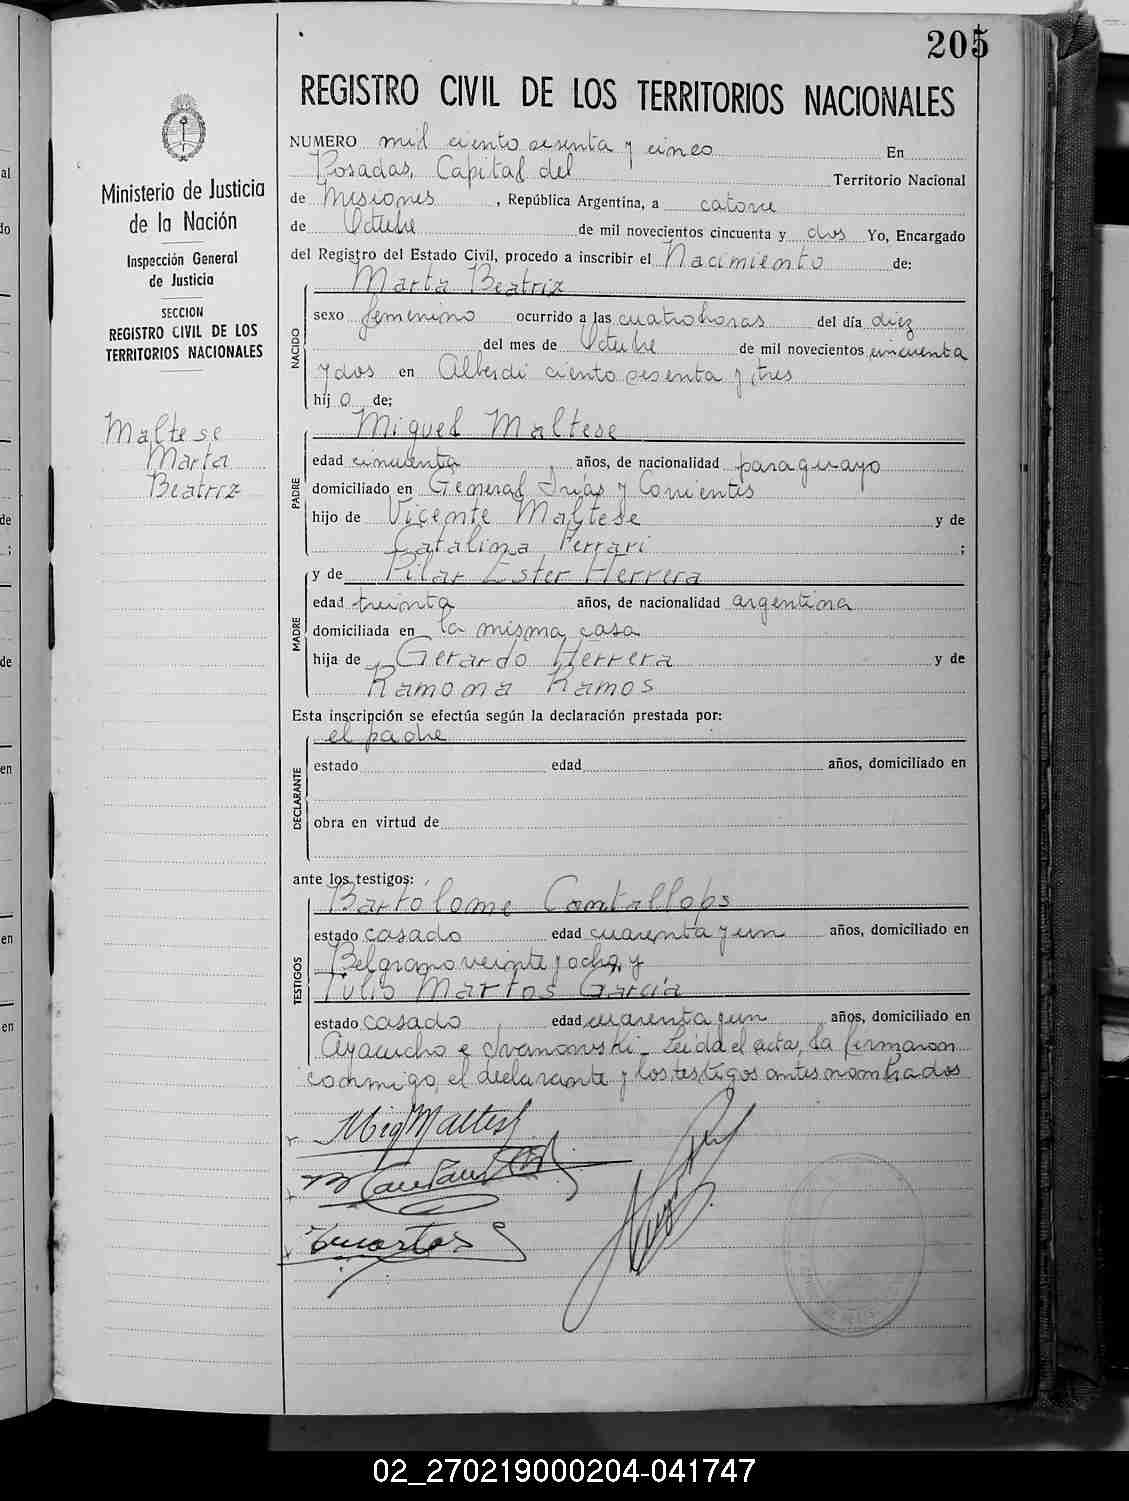 205
REGISTRO CIVIL DE LOS TERRITORIOS NACIONALES
NUMERO mil ciento sesenta y cinco En
Posadas, Capital del Territorio Nacional
de Misiones, República Argentina, a catorce
de Octubre de mil novecientos cincuenta y dos Yo, Encargado
del Registro del Estado Civil, procedo a inscribir el Nacimiento de:
Marta Beatriz
NACIDO
sexo femenino ocurrido a las cuatro horas del día diez
del mes de Octubre de mil novecientos cincuenta
y dos en Alberdi ciento sesenta y tres
hij o de:
Miguel Maltese
PADRE
edad cincuenta años, de nacionalidad paraguayo
domiciliado en General Frías y Corrientes
hijo de Vicente Maltese y de
Catalina Ferrari ;
y de Pilar Ester Herrera
MADRE
edad treinta años, de nacionalidad argentina
domiciliada en la misma casa
hija de Gerardo Herrera y de
Ramona Ramos
Esta inscripción se efectúa según la declaración prestada por:
el padre
DECLARANTE
estado edad años, domiciliado en
obra en virtud de
ante los testigos:
Bartolome Cantallops
TESTIGOS
estado casado edad cuarenta y un años, domiciliado en
Belgrano veinte y ocho, y
Tulio Martos García
estado casado edad cuarenta y un años, domiciliado en
Ayacucho e Ivanowski_ Leída el acta, la firmaron
conmigo, el declarante y los testigos antes nombrados
Mig Maltese
Ministerio de Justicia
de la Nación
Inspección General
de Justicia
SECCION
REGISTRO CIVIL DE LOS
TERRITORIOS NACIONALES
Maltese
Marta
Beatriz
al
do
de
;
de
en
en
en
02_270219000204-041747